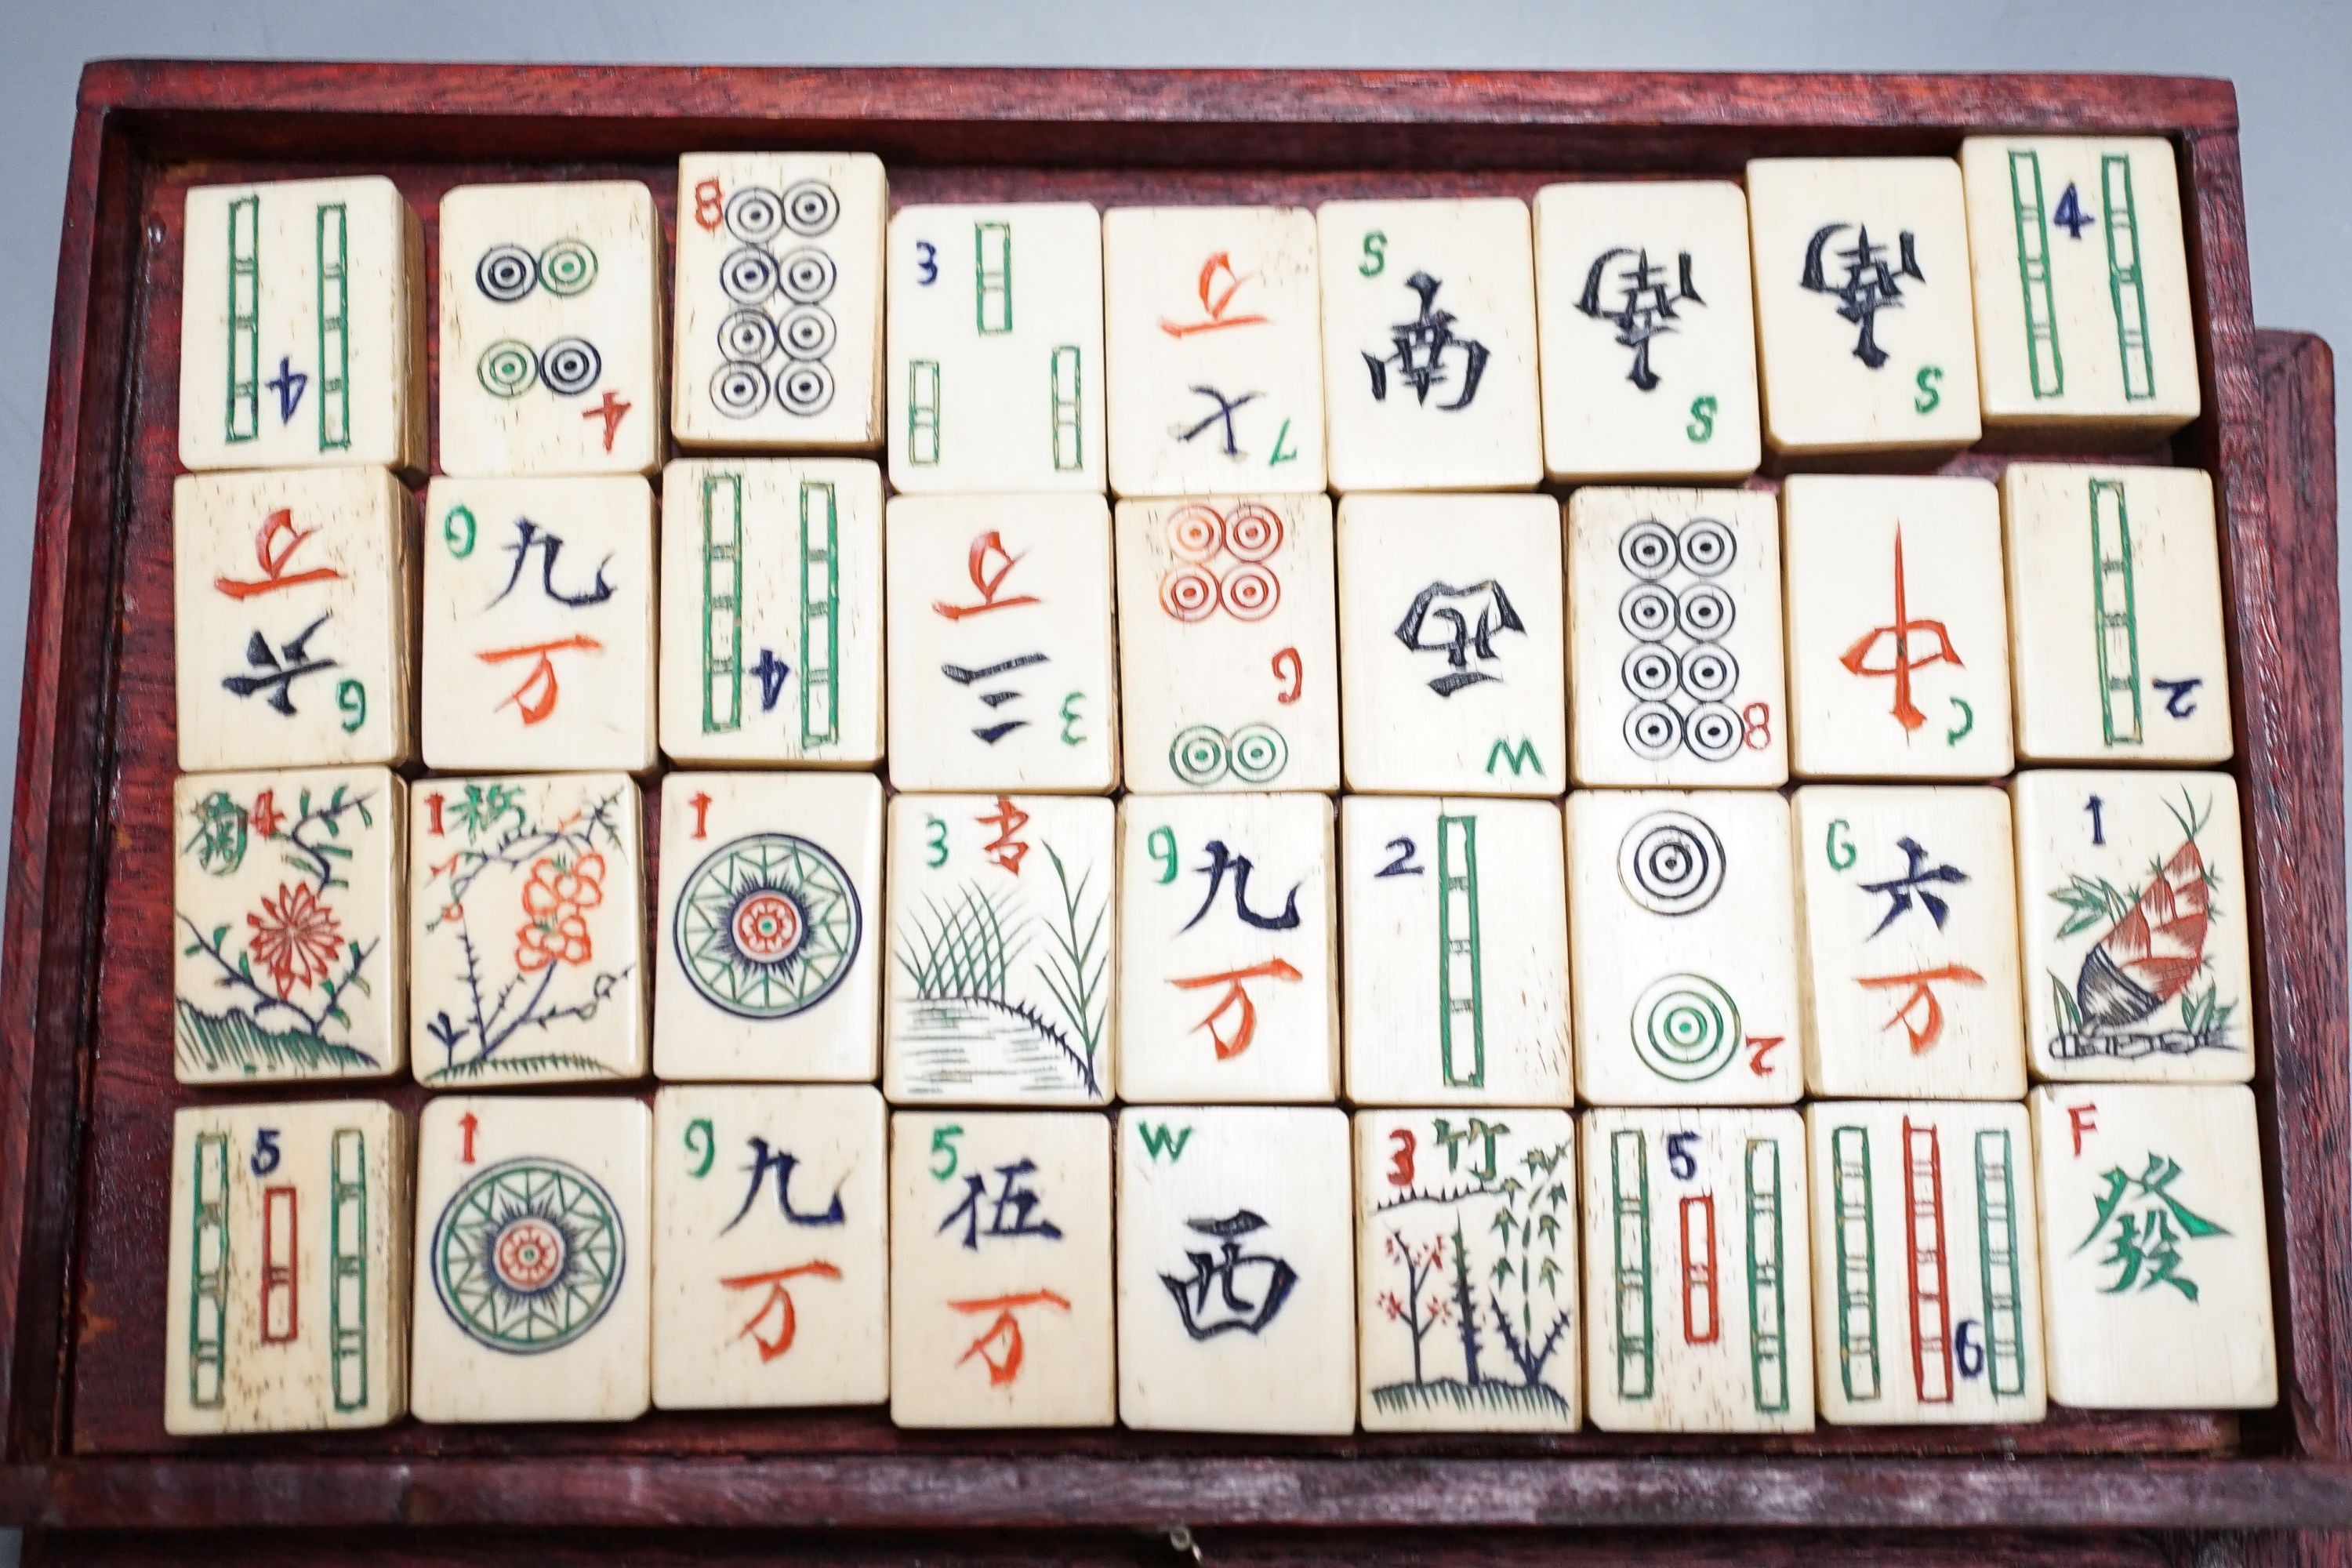 4
4
8
3
7
七
万
S
南
S
南
S
南
4
6
六
万
9
九
万
4
3
三
万
6
W
西
8
C
中
2
菊 4
1
1
3
9
九
万
2
2
6
六
万
1
5
1
9
九
万
5
伍
万
W
西
3 竹
5
6
F
發